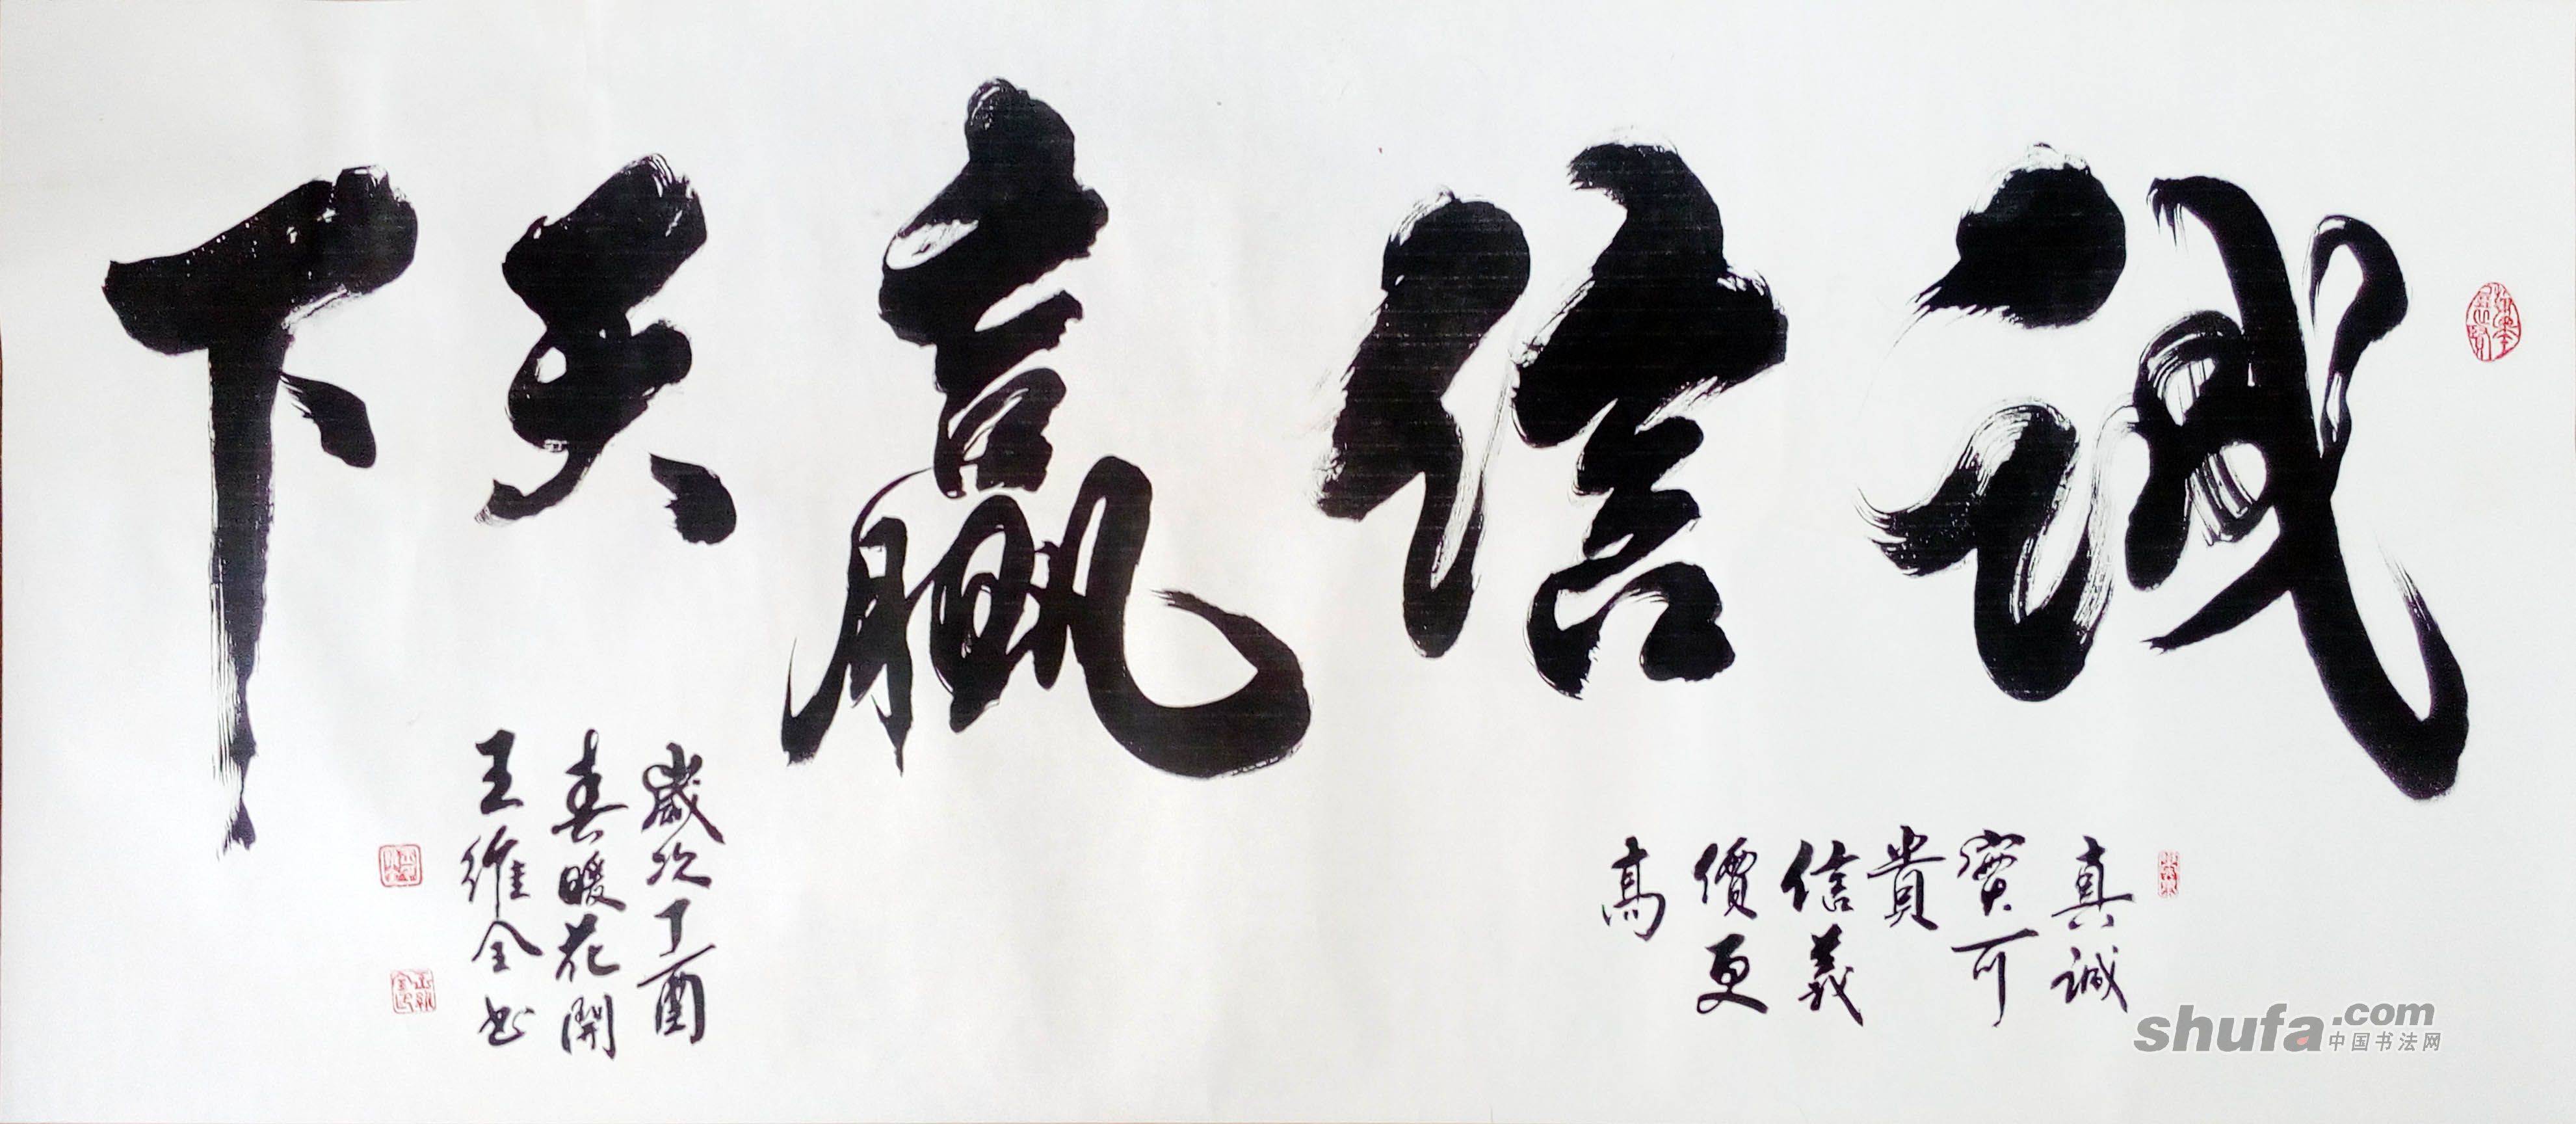 誠信贏天下
真誠
寶可
貴
信義
價更
高
歲次丁酉
春暖花開
王維全书
shufa.com
中国书法网